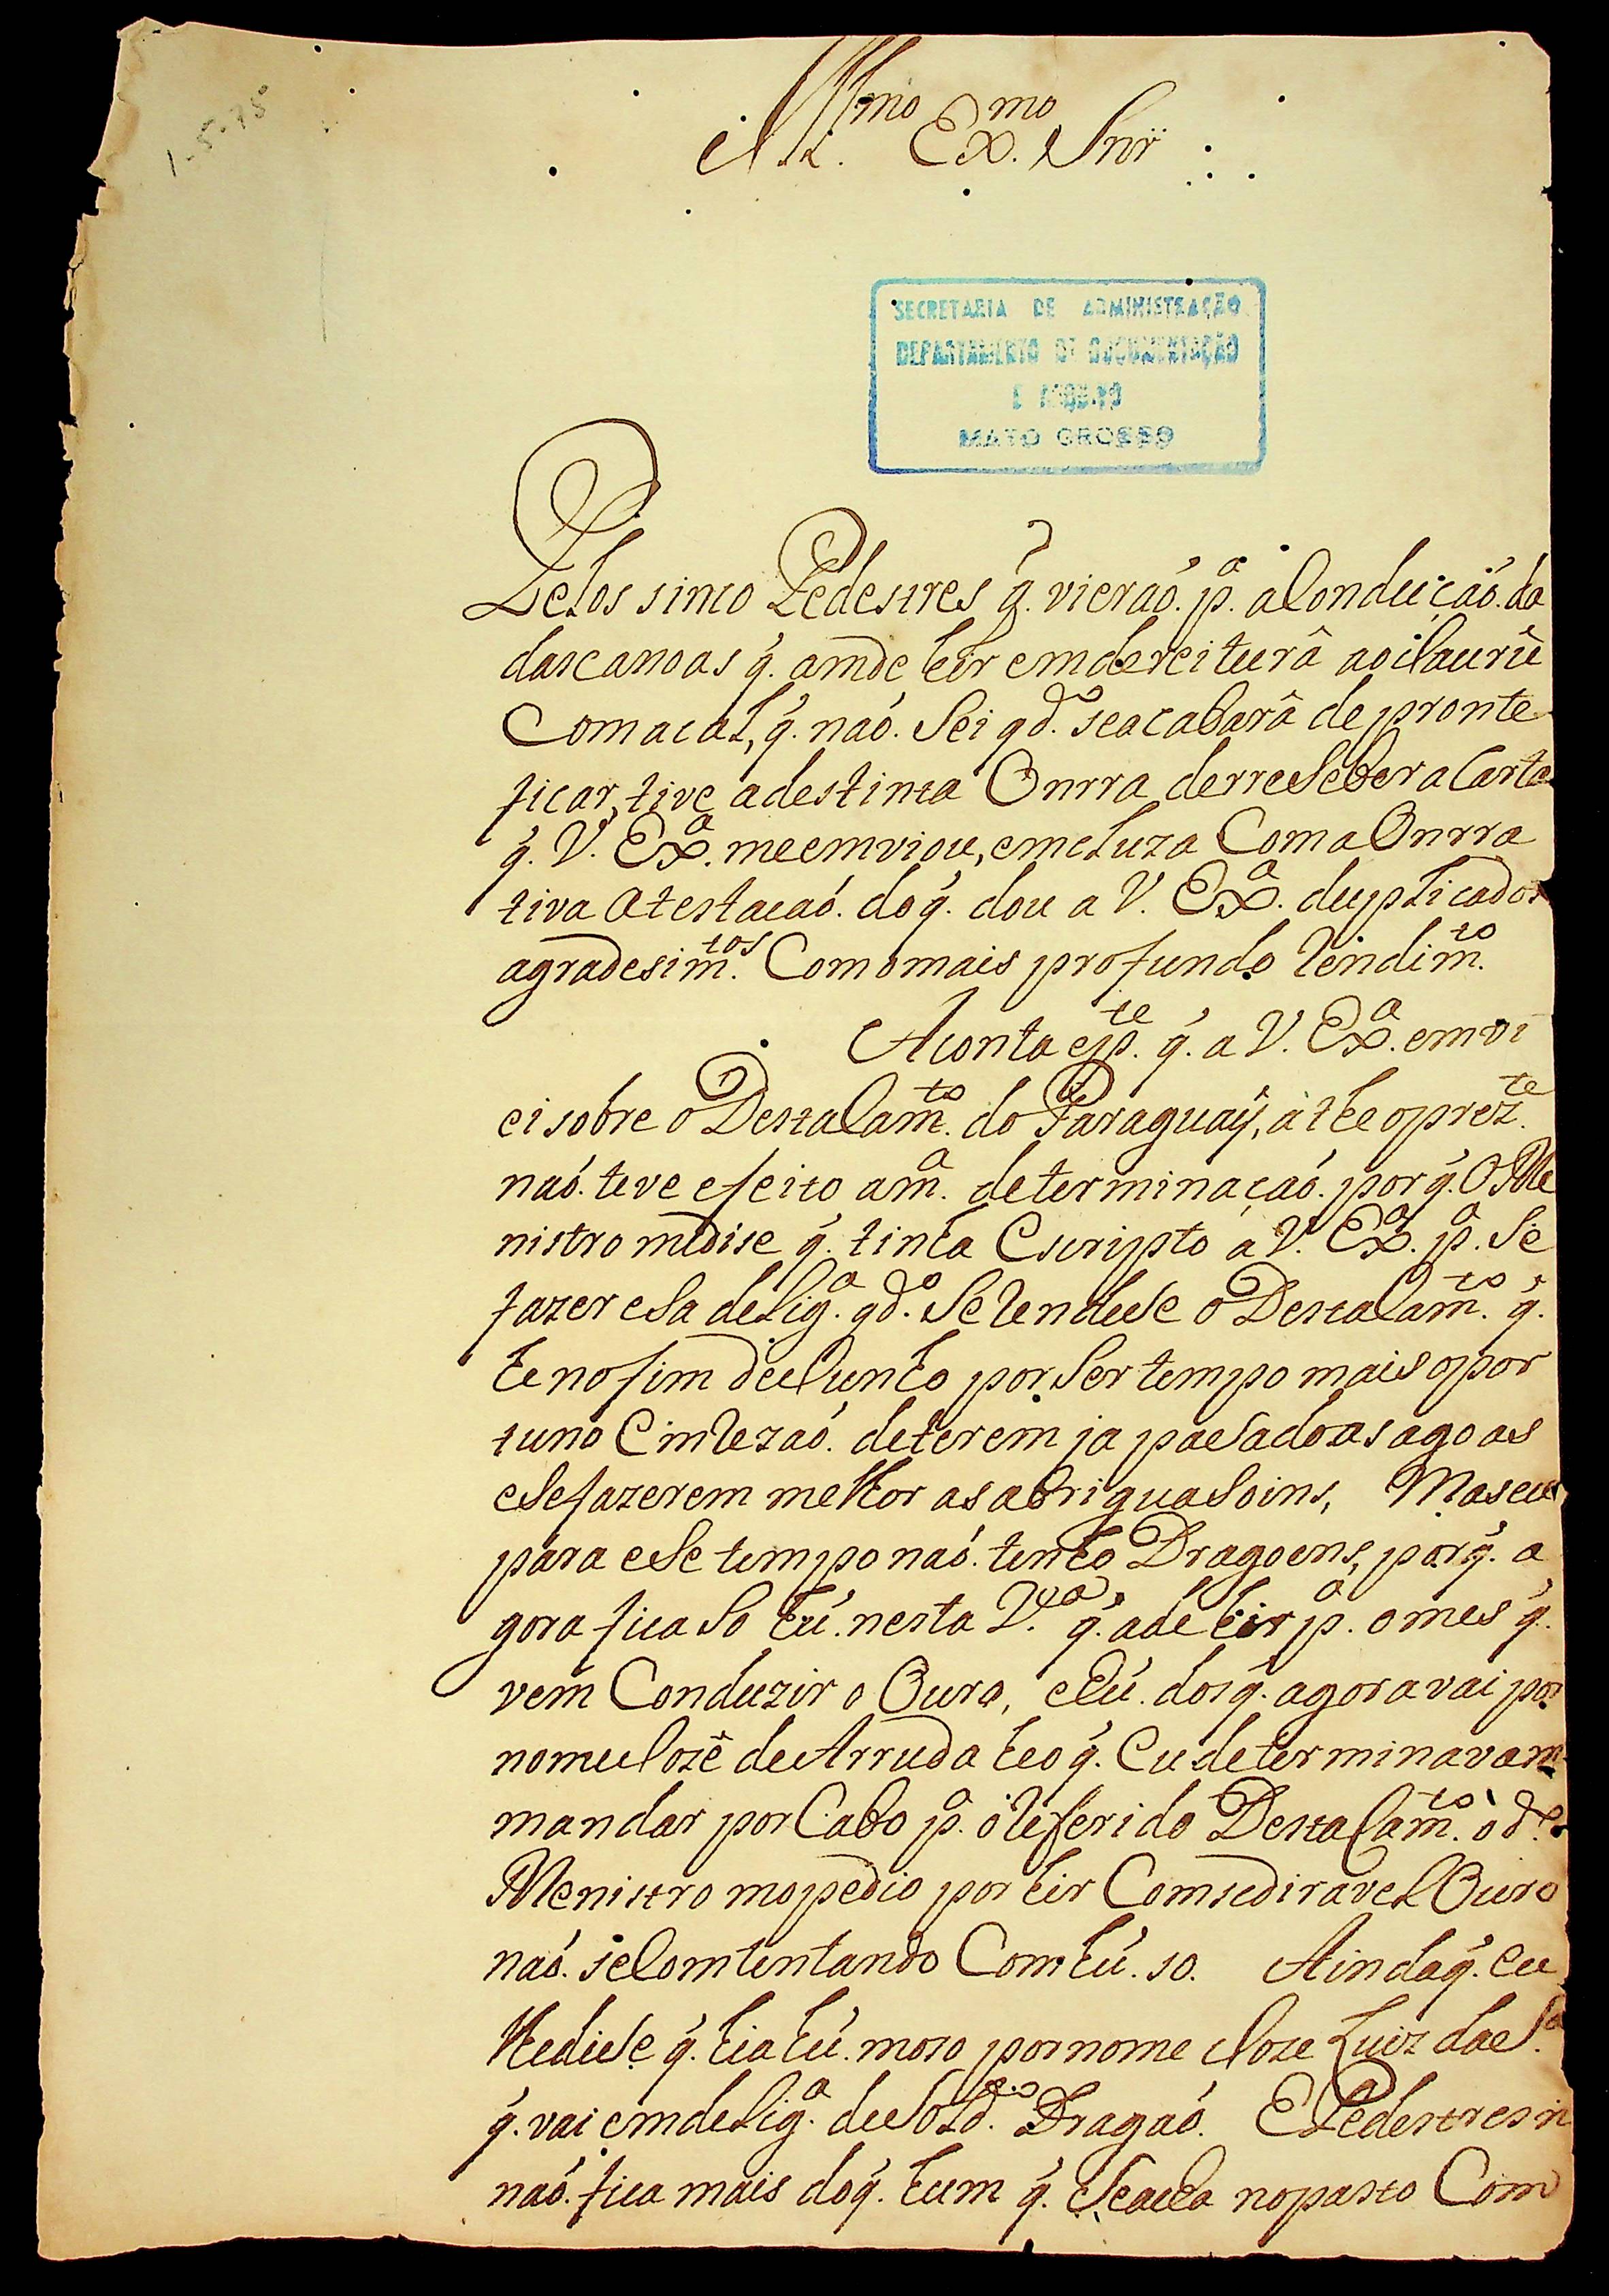 1-5-75
Ill.mo Ex.mo Snr̃
SECRETARIA DE ADMINISTRAÇÃO
DEPARTAMENTO DE DOCUMENTAÇÃO
E ARQUIVO
MATO GROSSO
Pelos sinco Pedestres q̃. vieraó. p.a aConduiçaó. da
dascanoas q̃. amde hir emdereiturâ aoJaurû
Comacal, q̃. naó. Sei qd.o seacabarâ depronte
ficar, tive adestinta Onrra derreSeber aCarta
q̃. V. Ex.a meemviou, emcluza ComaOnrra
tiva Atestacaó. doq̃. dou a V. Ex.a duplicados
agradesim.tos Comomais profundo Rendim.to
Aconta e p.te q̃. a V. Ex.a emvi
ei sobre o DestaCam.to do Paraguaÿ, athe oprez.te
naó. teve efeito am.a determinaçaó. porq̃. OMe
nistro medise q̃. tinha Escripto a V. Ex.a p.a Se
fazer eSa delig.a qd.o SeRendeSe o DestaCam.to q̃.
he nofim deJunho por Ser tempo maisopor
tuno EimRezaó. deterem ja paSado as agoas
eSefazerem melhor as abriguaSoins, Maseu
para eSe tempo naó. tenho Dragoens, porq̃. a
gora fica So hú. nesta V.a q̃. ade hir p.a omes q̃.
vem Conduzir o Ouro, ehú. dosq̃. agora vai por
nomeJozê deArruda heoq̃. Eudeterminavam
mandar porCabo p.a oReferido DestaCam.to ò d.o
Menistro mopedio por hir Comsediravel Ouro
naó. seComtentando Com hú. so. Aindaq̃. eu
lhediSe q̃. hia hú. moso pornome Joze Luiz daS.a
q̃. vai emdelig.a deSold.o Dragaó. EPedestres
naó. fica mais doq̃. hum q̃. nopasto Com